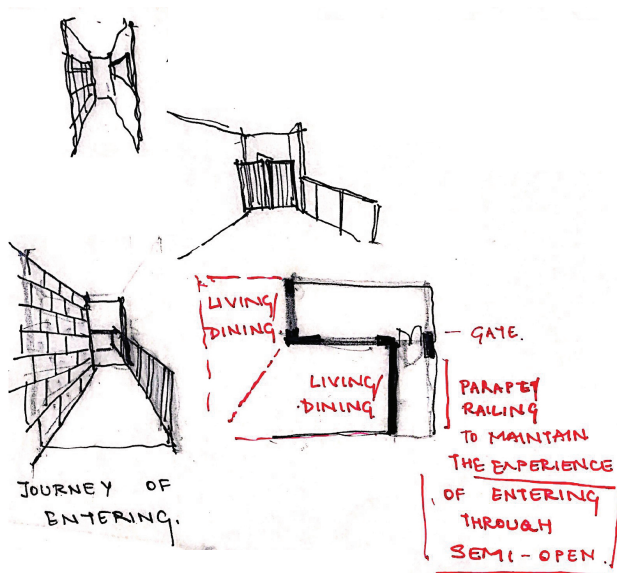 LIVING/
DINING
LIVING/
DINING
GATE.
PARAPET/
RAILING
TO MAINTAIN
THE EXPERIENCE
OF ENTERING
THROUGH
SEMI-OPEN.
JOURNEY OF
ENTERING.